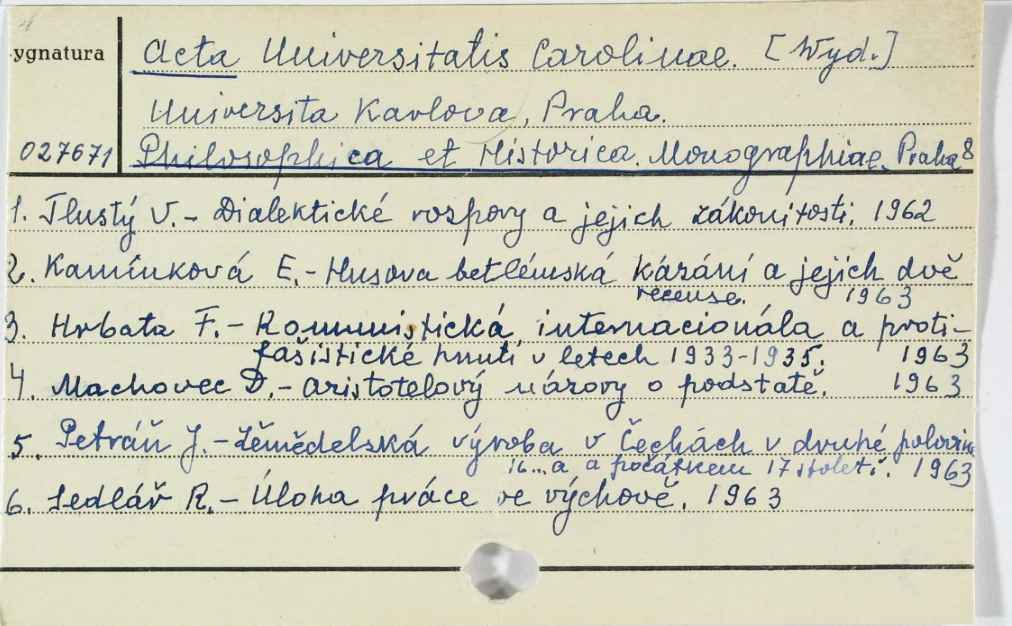 ygnatura
Acta Universitatis Carolinae. [Wyd.]
Universita Karlova, Praha.
027671
Philosophica et Historica. Monographiae. Praha 8
1. Tlustý V. - Dialektické rozpory a jejich zákonitosti. 1962
2. Kamínková E. - Husova betlémská kázání a jejich dvě
recense. 1963
3. Hrbata F. - Kommunistická internacionála a proti-
fašistické hnutí v letech 1933-1935. 1963
4. Machovec D. - Aristotelový názory o podstatě. 1963
5. Petráň J. - Zěmědelská výroba v Čechách v druhé polovině
16... a a počátkem 17 století. 1963
6. Sedlář R. - Úloha práce ve výchově. 1963